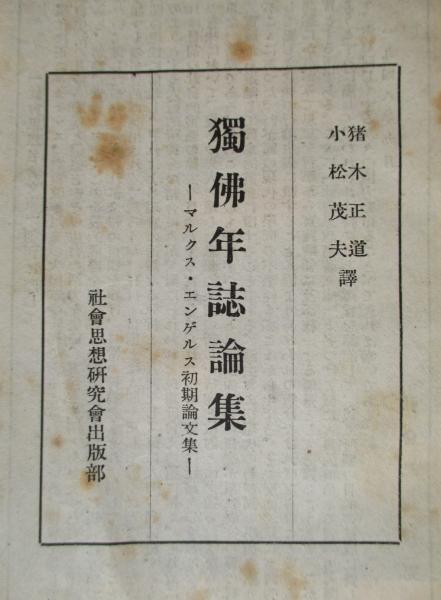 猪木正道
小松茂夫譯
獨佛年誌論集
―マルクス・エンゲルス初期論文集―
社會思想硏究會出版部